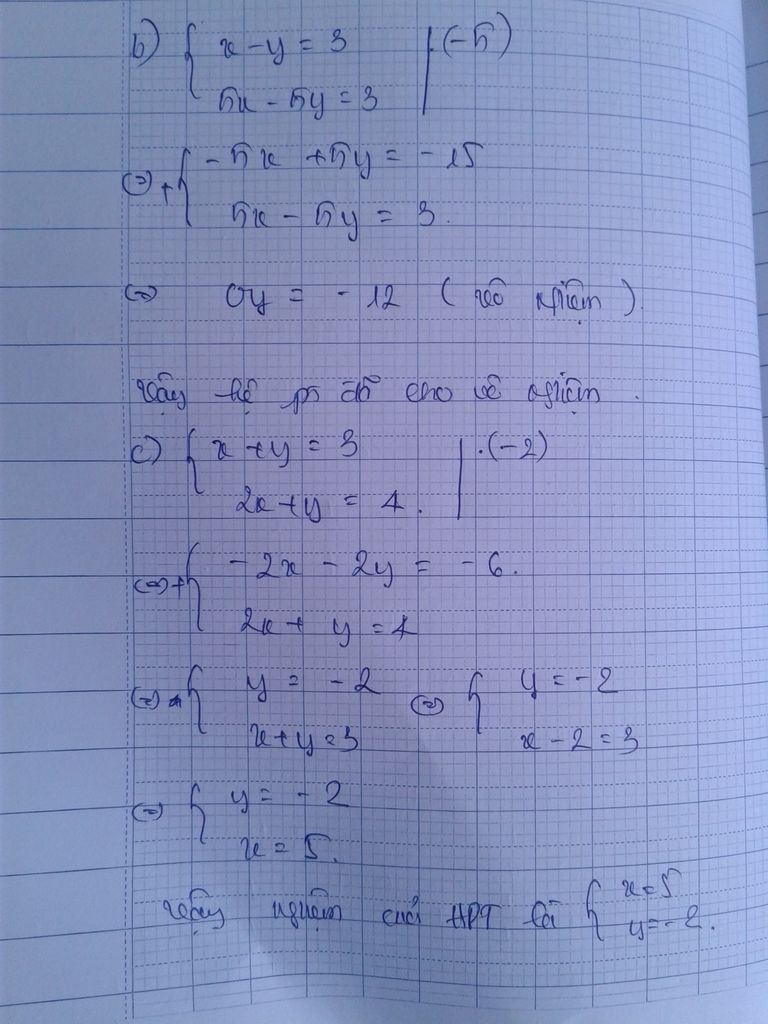 b) { x - y = 3 | (-5)
5x - 5y = 3
(=) + { -5x + 5y = -15
5x - 5y = 3.
(=) 0y = -12 (vô nghiệm)
Vậy hệ pt đã cho vô nghiệm.
c) { x + y = 3 | .(-2)
2x + y = 4.
(=) + { -2x - 2y = -6.
2x + y = 4
(=) { y = -2 (=) { y = -2
x + y = 3 x - 2 = 3
(=) { y = -2
x = 5.
Vậy nghiệm của HPT là { x = 5
y = -2.